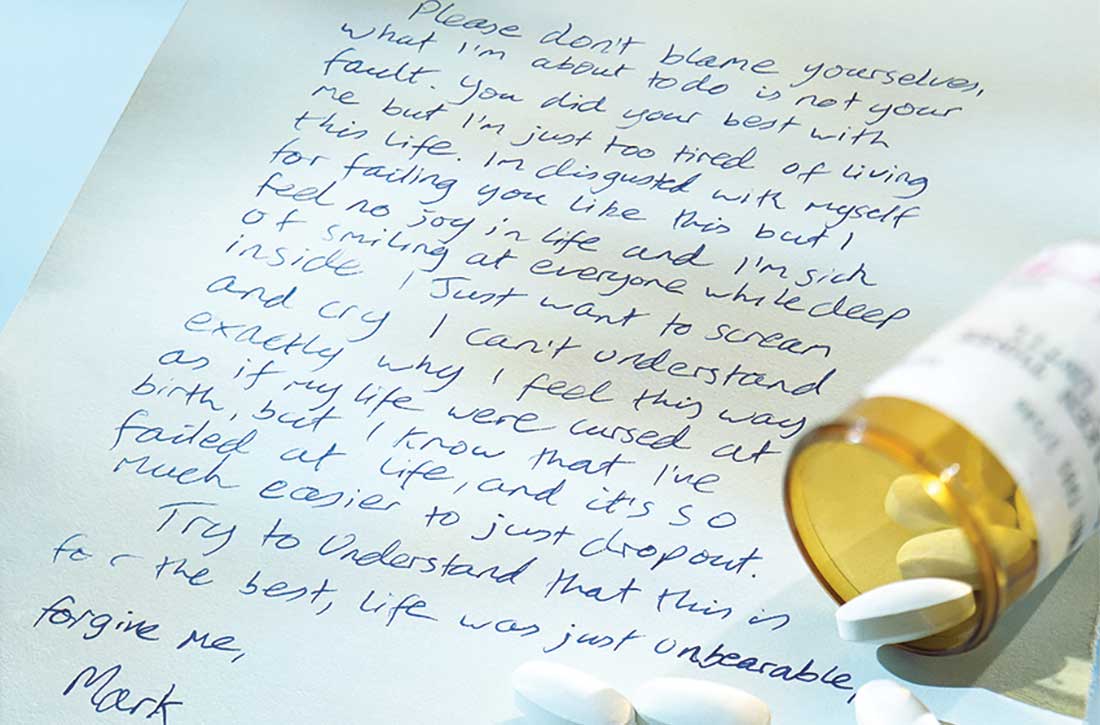 Please don't blame yourselves,
what I'm about to do is not your
fault. You did your best with
me but I'm just too tired of living
this life. I'm disgusted with myself
for failing you like this but I
feel no joy in life and I'm sick
of smiling at everyone while deep
inside I Just want to scream
and cry I can't understand
exactly why I feel this way
as if my life were cursed at
birth, but I know that I've
failed at life, and it's so
much easier to just drop out.
Try to Understand that this is
for the best, life was just unbearable,
forgive me,
Mark